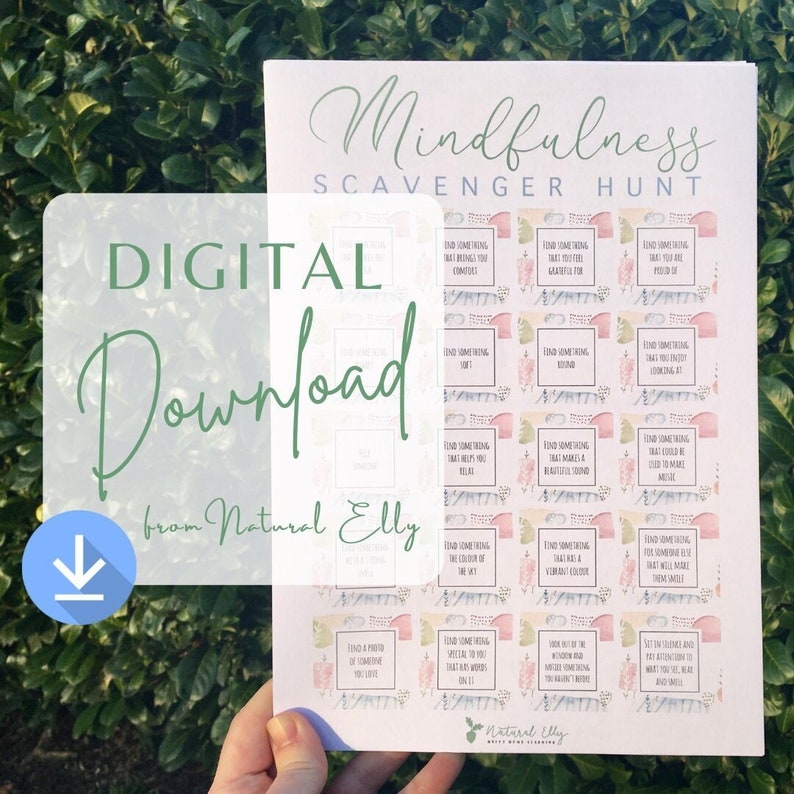 Mindfulness
SCAVENGER HUNT
DIGITAL
Download
from Natural Elly
FIND SOMETHING
THAT BRINGS YOU
COMFORT
FIND SOMETHING
THAT YOU FEEL
GRATEFUL FOR
FIND SOMETHING
THAT YOU ARE
PROUD OF
FIND SOMETHING
SOFT
FIND SOMETHING
ROUND
FIND SOMETHING
THAT YOU ENJOY
LOOKING AT
HELP
SOMEONE
FIND SOMETHING
THAT HELPS YOU
RELAX
FIND SOMETHING
THAT MAKES A
BEAUTIFUL SOUND
FIND SOMETHING
THAT COULD BE
USED TO MAKE
MUSIC
FIND SOMETHING
WITH A STRONG
SMELL
FIND SOMETHING
THE COLOUR OF
THE SKY
FIND SOMETHING
THAT HAS A
VIBRANT COLOUR
FIND SOMETHING
FOR SOMEONE ELSE
THAT WILL MAKE
THEM SMILE
FIND A PHOTO
OF SOMEONE
YOU LOVE
FIND SOMETHING
SPECIAL TO YOU
THAT HAS WORDS
ON IT
LOOK OUT OF THE
WINDOW AND
NOTICE SOMETHING
YOU HAVEN'T BEFORE
SIT IN SILENCE AND
PAY ATTENTION TO
WHAT YOU SEE, HEAR
AND SMELL
Natural Elly
HAPPY HOME LEARNING